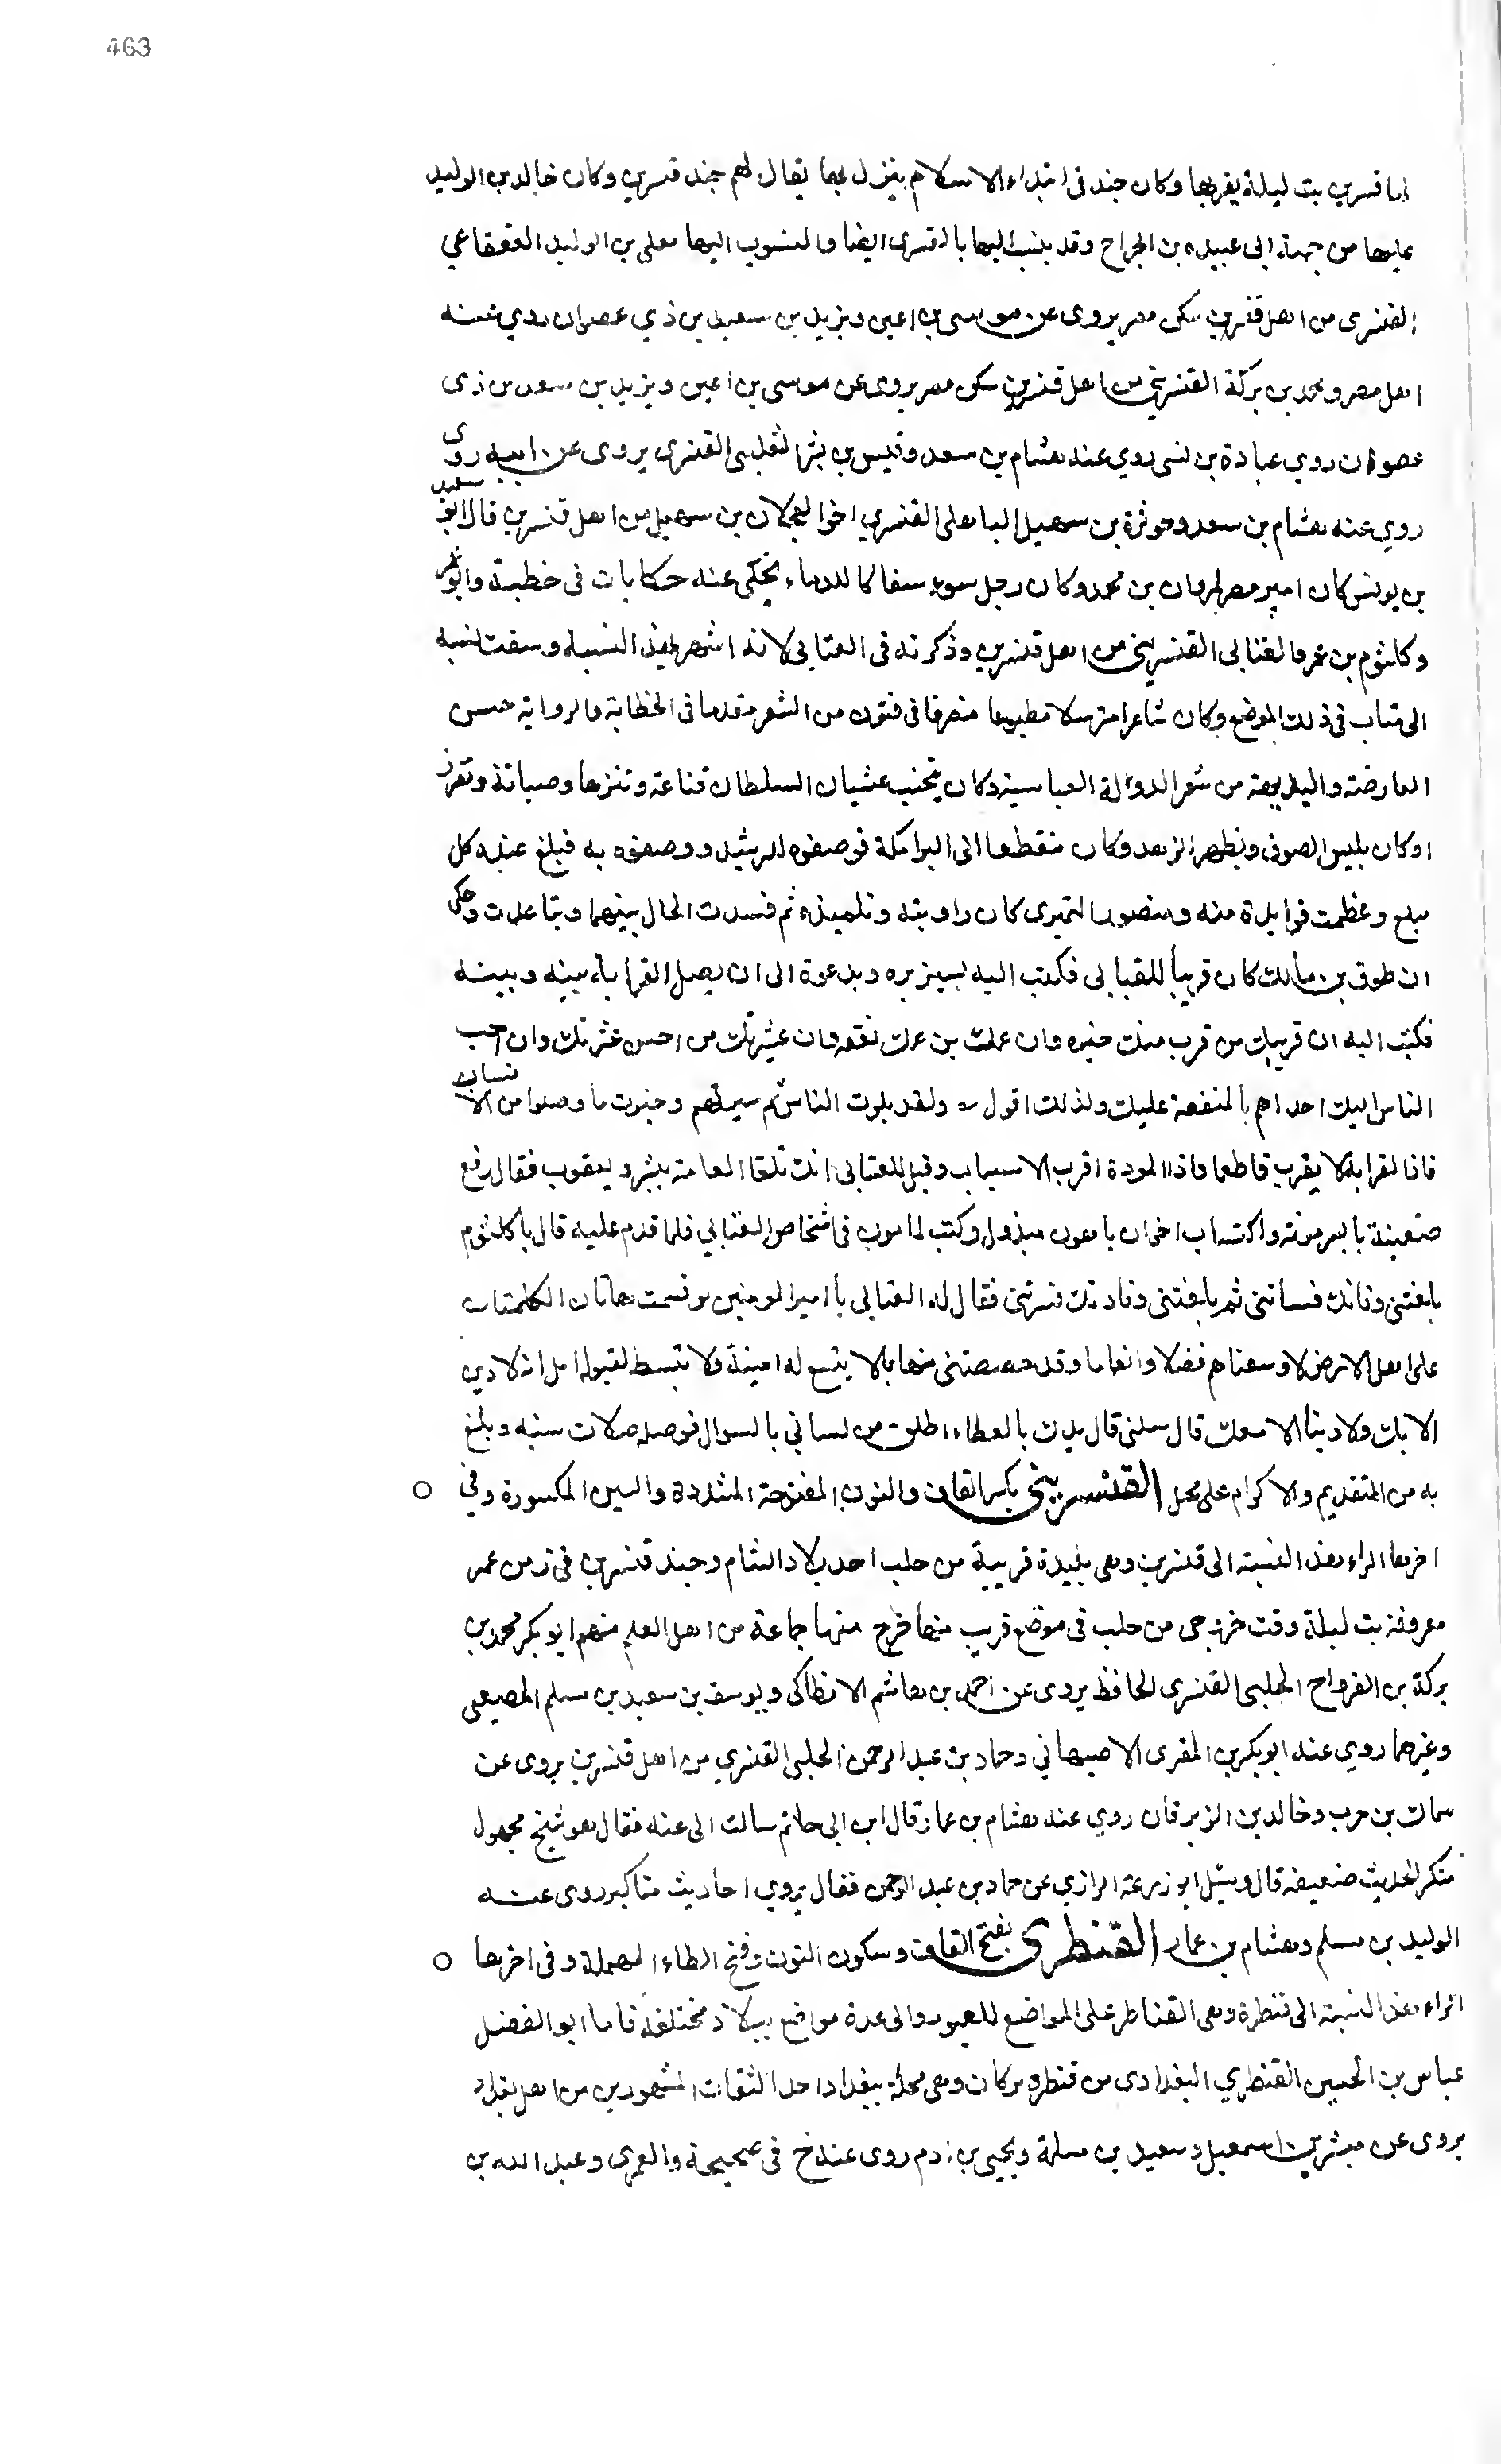 463
اما قنسرين بت ليلة بقربها وكان جند فى ابتداء الاسلام ينزل بها يقال لهم جند قنسرين وكان خالد بن الوليد
عليها من جهة ابى عبيده بن الجراح وقد ينسب اليها بالقنسرى ايضا والمنسوب اليها معلى بن الوليد القعقاعي
القنسرى من اهل قنسرين سكن مصر يروى عن موسى بن اعين ويزيد بن سعيد بن ذي عصوان روي عنه
اهل مصر ومحمد بن بركة القنسريني من اهل قنسرين سكن مصر يروى عن موسى بن اعين ويزيد بن سعد بن ذى
عصوان روي عبادة بن نسى روي عنه هشام بن سعد وقيس بن بشر الثعلبى القنسرى يروى عن ابيه روى
روي عنه هشام بن سعد وحوثرة بن سهيل الباهلى القنسري اخو العجلان بن سهيل من اهل قنسرين قال ابو سعيد
بن يونس كان امير مصر لمروان بن محمد وكان رجل سوء سفاكا للدماء يحكى عنه حكايات فى خطبته وابو عمر
وكلثوم بن عمرو العتابى القنسرينى من اهل قنسرين وذكرته فى العتابى لانه اشهر بهذه النسبة وسقت نسبه
الى عتاب فى ذلك الموضع وكان شاعرا مترسلا مطبوعا متصرفا فى فنون من الشعر مقدما فى الخطابة والرواية حسن
العارضة والبديهة من شعر الدولة العباسية وكان يتجنب غشيان السلطان قناعة وتنزها وصيانة وتعززا
وكان يلبس الصوف ويظهر الزهد وكان منقطعا الى البرامكة فوصفوه للرشيد ووصفوه به فبلغ عنده كل
مبلغ وعظمت فوايده منه ومنصور النميرى كان راويته وتلميذه ثم فسدت الحال بينهما وتباعدت وحكى
ان طوق بن مالك كان قريبا للعتابى فكتب اليه يستزيره ويدعوه الى ان يصل القرابة بينه وبينه
فكتب اليه ان قريبك من قرب منك خيره وان عمك من عمك نفعه وان عشيرتك من احسن عشرتك وان احب
الناس اليك اجداهم بالمنفعة عليك ولذلك اقول ولقد بلوت الناس ثم سبرتهم وخبرت ما وصلوا من الانساب
فاذا القرابة لا يقرب قاطعا واذا المودة اقرب الاسباب وقيل للعتابى انك تلقا العامة ببشر وتقريب فقال رفع
ضغينة بايسر مونة واكتساب اخوان باهون مبذول وكتب المامون فى اشخاص العتابي فلما قدم عليه قال يا كلثوم
بلغتنى وفاتك فساتنى ثم بلغتنى وفادتك فسرتنى فقال له العتابى يا امير المومنين لو قسمت هاتان الكلمتان
على اهل الارض لاوسعتاهم فضلا وانعاما وقد خصصتنى منها بما لا يتسع له امنية ولا تبسط لقبوله امل لانه لا دين
الا بك ولا دنيا الا معك قال سلنى قال يدك بالعطاء اطلق من لساني بالسوال فوصله صلات سنيه وبلغ
به من التقديم والاكرام على محل القنسرينى بكسر القاف والنون المفتوحة المشددة والسين المكسورة وفي
اخرها الراء هذه النسبة الى قنسرين وهى بليدة قريبة من حلب احد بلاد الشام وجند قنسرين فى زمن عمر
معروفة بت ليلة وقت خروجى من حلب فى موضع قريب منها خرج منها جماعة من اهل العلم منهم ابو بكر محمد بن
بركة بن الفرداح الحلبى القنسرى الحافظ يروى عن احمد بن هاشم الانطاكى ويوسف بن سعيد بن مسلم المصيصى
وغيرهما روي عنه ابو بكر بن المقرى الاصبهاني وحماد بن عبد الرحمن الحلبى القنسري من اهل قنسرين يروى عن
سماك بن حرب وخالد بن الزبرقان روي عنه هشام بن عمار قال ابن ابى حاتم سالت ابى عنه فقال هو شيخ مجهول
منكر الحديث ضعيفه قال وسئل ابو زرعة الرازي عن حماد بن عبد الرحمن فقال يروي احاديث مناكير روى عنه
الوليد بن مسلم وهشام بن عمار القنطرى بفتح القاف وسكون النون وفتح الطاء المهملة وفى اخرها
الراء هذه النسبة الى قنطرة وهى القناطر على المواضع للعبور والى عدة مواضع ببلاد مختلفة فاما ابو الفضل
عباس بن الحسين القنطري البغدادى من قنطرة بركان وهى محلة ببغداد احد الثقات المشهورين من اهل بغداد
يروى عن مبشر بن اسمعيل وسعيد بن مسلمة ويحيى بن ادم روى عنه خ فى صحيحة والعمرى وعبد الله بن